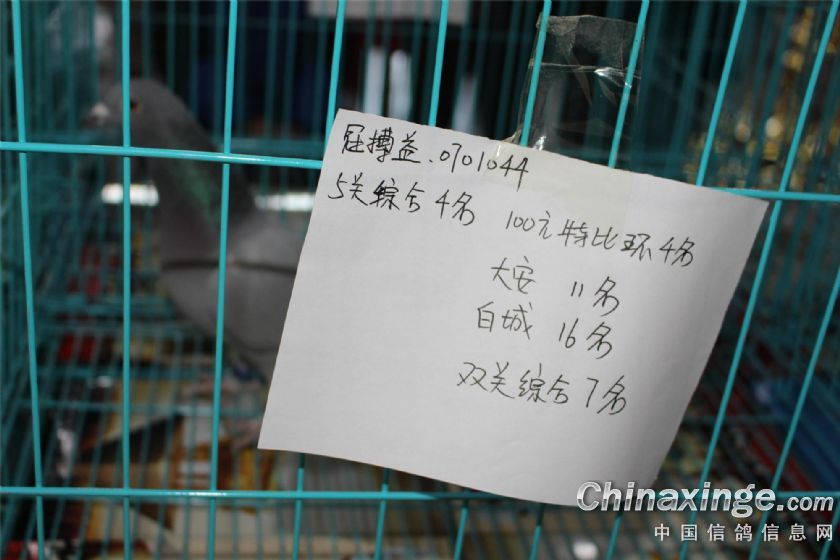 冠搏益、0701044
5关综合4名 100元特比环4名
大安 11名
白城 16名
双关综合7名
Chinaxinge.com
中国信鸽信息网